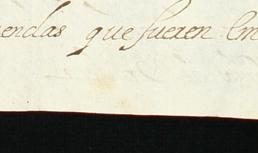 endas que fueren en